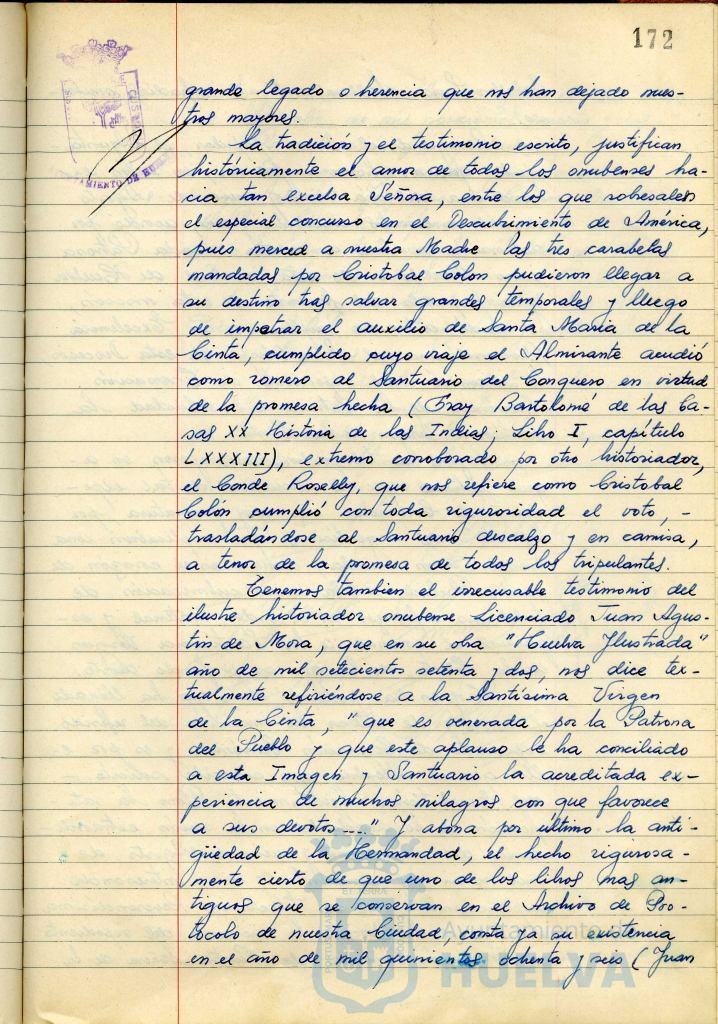 172
grande legado o herencia que nos han dejado nues-
tros mayores.
La tradición y el testimonio escrito, justifican
históricamente el amor de todos los onubenses ha-
cia tan excelsa Señora, entre los que sobresalen
el especial concurso en el Descubrimiento de América,
pues merced a nuestra Madre las tres carabelas
mandadas por Cristobal Colón pudieron llegar a
su destino tras salvar grandes temporales y lluego
de impetrar el auxilio de Santa María de la
Cinta, cumplido cuyo viaje el Almirante acudió
como romero al Santuario del Conquero en virtud
de la promesa hecha (Fray Bartolomé de las Ca-
sas XX Historia de las Indias; Libro I, capítulo
LXXXIII), extremo corroborado por otro historiador,
el Conde Roselly, que nos refiere como Cristobal
Colón cumplió con toda rigurosidad el voto, -
trasladándose al Santuario descalzo y en camisa,
a tenor de la promesa de todos los tripulantes.
Tenemos tambien el irrecusable testimonio del
ilustre historiador onubense Licenciado Juan Agus-
tín de Mora, que en su obra "Huelva Ilustrada"
año de mil setecientos setenta y dos, nos dice tex-
tualmente refiriéndose a la Santísima Virgen
de la Cinta, "que es venerada por la Patrona
del Pueblo y que este aplauso le ha conciliado
a esta Imagen y Santuario la acreditada ex-
periencia de muchos milagros con que favorece
a sus devotos....." Y abona por último la anti-
güedad de la Hermandad, el hecho rigurosa-
mente cierto de que uno de los libros mas an-
tiguos que se conservan en el Archivo de Pro-
tocolo de nuestra Ciudad, consta ya su existencia
en el año de mil quinientos ochenta y seis (Juan
AYUNTAMIENTO DE HUELVA
Ayuntamiento de
HUELVA